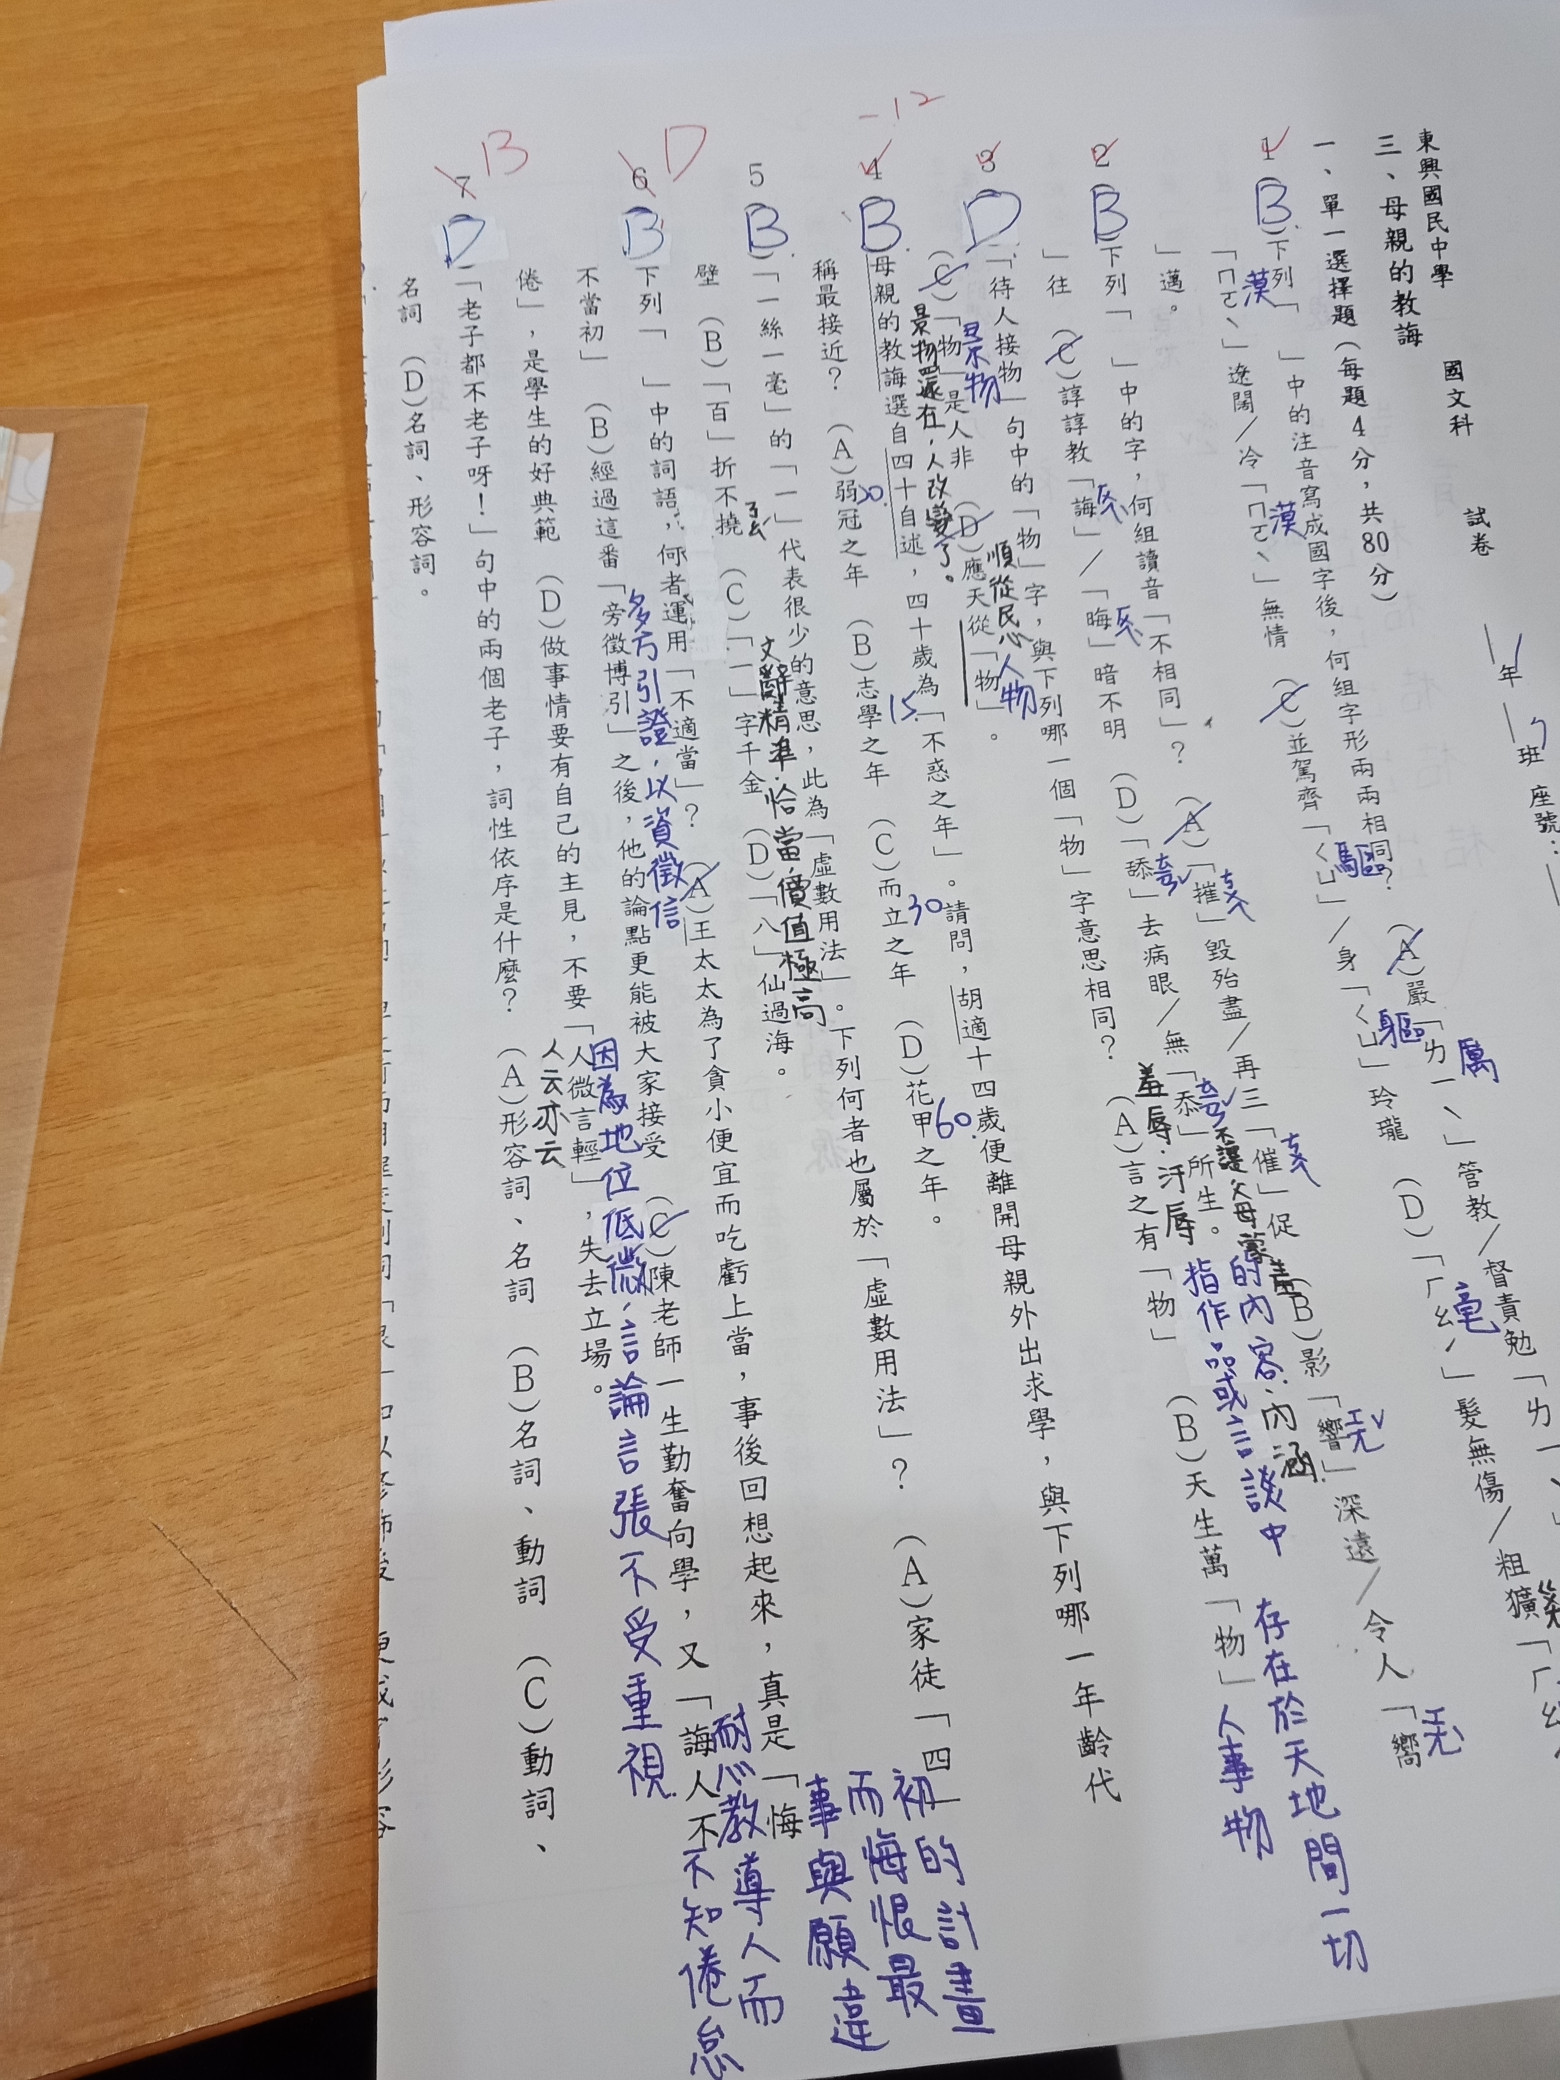 東興國民中學
國文科
試卷
年
班
座號：
三、母親的教誨
一、單一選擇題（每題4分，共80分）
1
B
下列「　」中的注音寫成國字後，何組字形兩兩相同？　（A）嚴「ㄌㄧˋ」管教／督責勉「ㄌㄧˋ」
厲
「ㄇㄛˋ」遼闊／冷「ㄇㄛˋ」無情　（C）並駕齊「ㄑㄩ」／身「ㄑㄩ」玲瓏　（D）「ㄏㄠˊ」髮無傷／粗獷「ㄏㄠˊ
漠
漠
驅
軀
毫
」邁。
2
B
下列「　」中的字，何組讀音「不相同」？　（A）「摧」毀殆盡／再三「催」促　（B）影「響」深遠／令人「嚮
」往　（C）諄諄教「誨」／「晦」暗不明　（D）「舔」去病眼／無「忝」所生。
羞辱．汙辱
3
D
「待人接物」句中的「物」字，與下列哪一個「物」字意思相同？　（A）言之有「物」　（B）天生萬「物」
指作品或言談中
的內容．內涵
存在於天地間一切
人事物
（C）「物」是人非　（D）應天從「物」。
景物
景物還在，人改變了。
順從民心
人物
-12
4
B
母親的教誨選自四十自述，四十歲為「不惑之年」。請問，胡適十四歲便離開母親外出求學，與下列哪一年齡代
稱最接近？　（A）弱冠之年　（B）志學之年　（C）而立之年　（D）花甲之年。
20
15
30
60
5
B
「一絲一毫」的「一」代表很少的意思，此為「虛數用法」。下列何者也屬於「虛數用法」？　（A）家徒「四」
壁　（B）「百」折不撓　（C）「一」字千金　（D）「八」仙過海。
文辭精準．恰當，價值極高
6
D
B
下列「　」中的詞語，何者運用「不適當」？　（A）王太太為了貪小便宜而吃虧上當，事後回想起來，真是「悔
事與願違
而悔恨最
初的計畫
不當初」　（B）經過這番「旁徵博引」之後，他的論點更能被大家接受　（C）陳老師一生勤奮向學，又「誨人不
多方引證，以資徵信
耐心教導人而
不知倦怠
倦」，是學生的好典範　（D）做事情要有自己的主見，不要「人微言輕」，失去立場。
因為地位低微，言論言張不受重視
人云亦云
7
B
D
「老子都不老子呀！」句中的兩個老子，詞性依序是什麼？　（A）形容詞、名詞　（B）名詞、動詞　（C）動詞、
名詞　（D）名詞、形容詞。